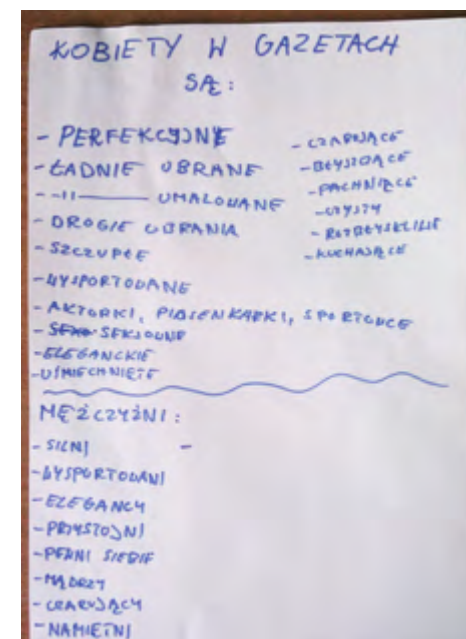 KOBIETY W GAZETACH
SĄ:
- PERFEKCYJNE
- ŁADNIE UBRANE
- -11- UMALOWANE
- DROGIE UBRANIA
- SZCZUPŁE
- WYSPORTOWANE
- AKTORKI, PIOSENKARKI, SPORTOWCE
- SEKSOWNE
- ELEGANCKIE
- UŚMIECHNIĘTE
- CZARUJĄCE
- BŁYSZCZĄCE
- PACHNĄCE
- KOCHAJĄCE
MĘŻCZYŹNI:
- SILNI
-
- WYSPORTOWANI
- ELEGANCY
- PRZYSTOJNI
- PEŁNI SIEBIE
- MĄDRZY
- CZARUJĄCY
- NAMIĘTNI